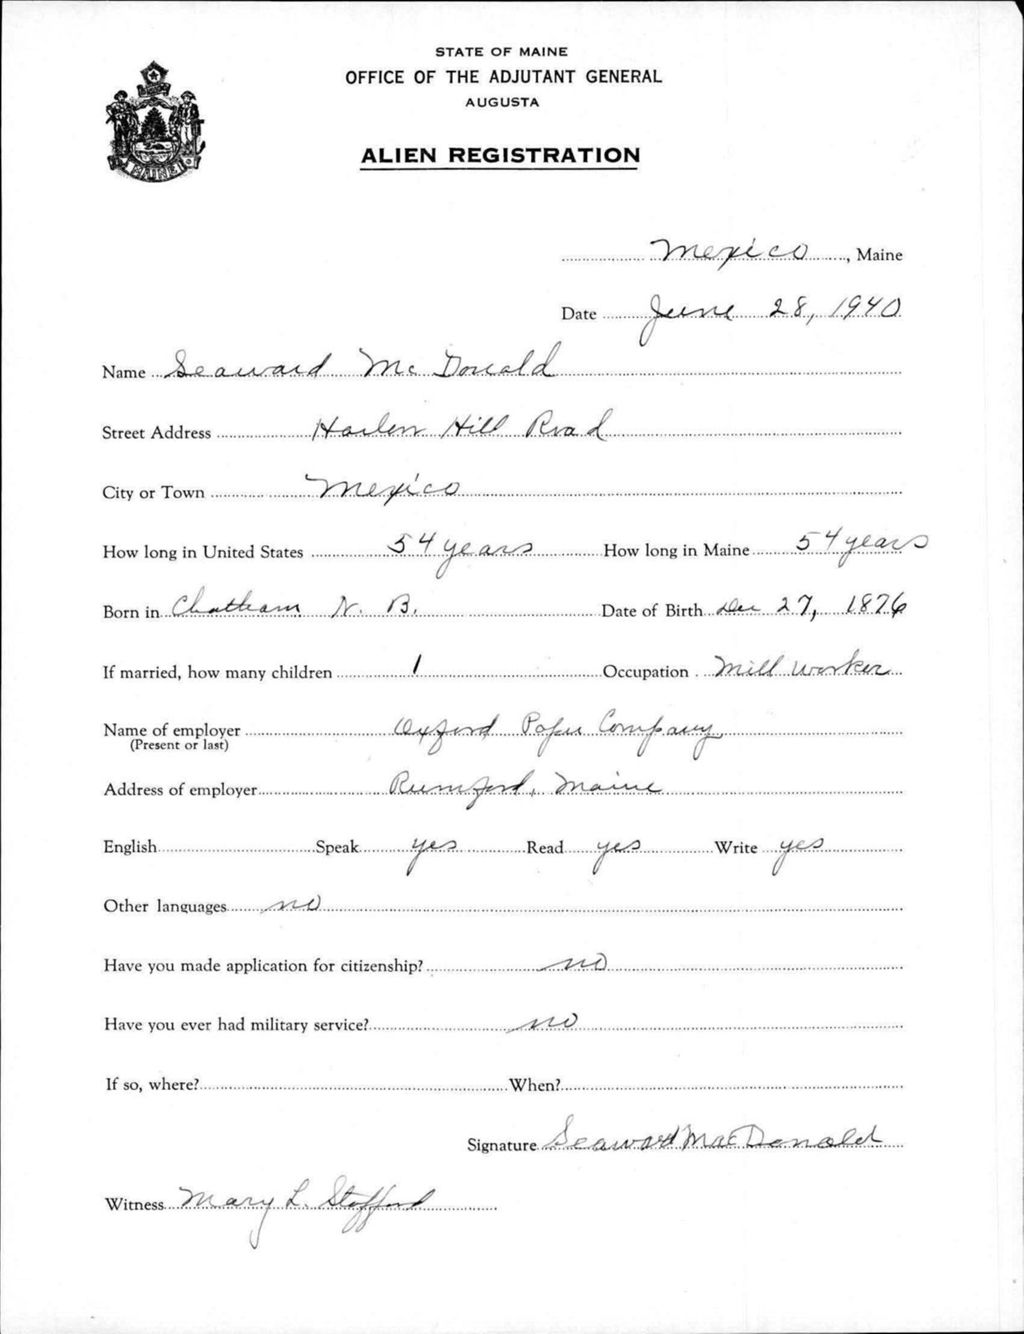 STATE OF MAINE
OFFICE OF THE ADJUTANT GENERAL
AUGUSTA
ALIEN REGISTRATION
MAINE
Mexico, Maine
Date June 28, 1940
Name Seaward Mc Donald
Street Address Harlow Hill Road
City or Town Mexico
How long in United States 54 years How long in Maine 54 years
Born in Chatham N. B. Date of Birth Dec 27, 1876
If married, how many children 1 Occupation Mill worker
Name of employer Oxford Paper Company
(Present or last)
Address of employer Rumford, Maine
English Speak yes Read yes Write yes
Other languages no
Have you made application for citizenship? no
Have you ever had military service? no
If so, where? When?
Signature Seaward MacDonald
Witness Mary L. Stafford